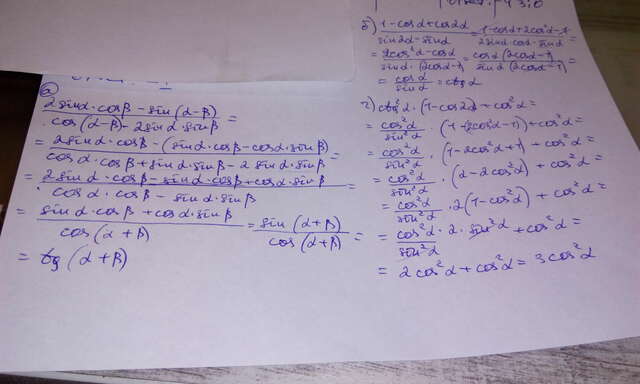 а)
(2sinα·cosβ - sin(α-β))/(cos(α-β) - 2sinα·sinβ) =
= (2sinα·cosβ - (sinα·cosβ - cosα·sinβ))/(cosα·cosβ + sinα·sinβ - 2sinα·sinβ) =
= (2sinα·cosβ - sinα·cosβ + cosα·sinβ)/(cosα·cosβ - sinα·sinβ) =
= (sinα·cosβ + cosα·sinβ)/(cos(α+β)) = (sin(α+β))/(cos(α+β)) =
= tg(α+β)
б) (1-cosα+cos2α)/(sin2α-sinα) = (1-cosα+2cos²α-1)/(2sinα·cosα-sinα) =
= (2cos²α-cosα)/(sinα·(2cosα-1)) = (cosα(2cosα-1))/(sinα(2cosα-1)) =
= cosα/sinα = ctgα
г) ctg²α·(1-cos2α)+cos²α =
= cos²α/sin²α·(1-(2cos²α-1))+cos²α =
= cos²α/sin²α·(1-2cos²α+1)+cos²α =
= cos²α/sin²α·(2-2cos²α)+cos²α =
= cos²α/sin²α·2(1-cos²α)+cos²α =
= cos²α/sin²α·2·sin²α+cos²α =
= 2cos²α+cos²α = 3cos²α